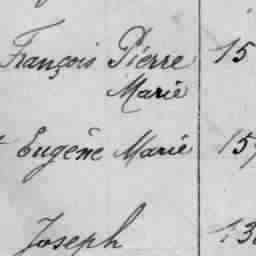 François Pierre 15
Marie
Eugène Marie 15
Joseph 13